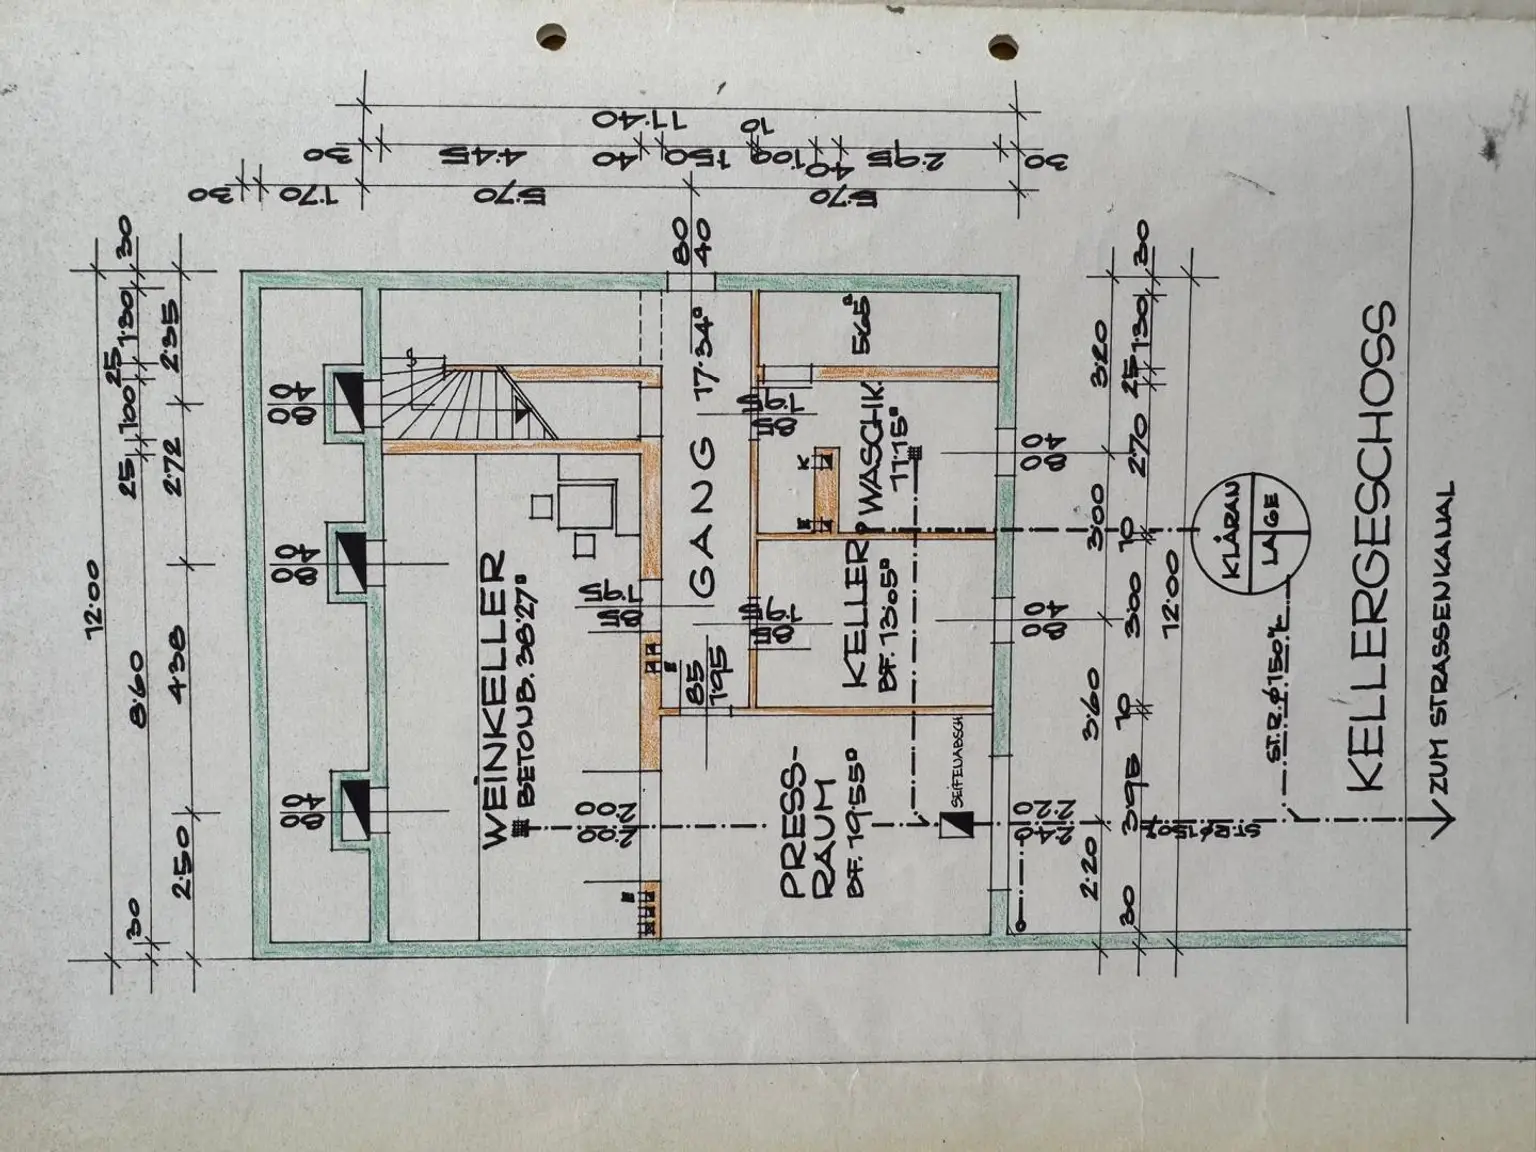 11·40
30
4·45
40
1·50
10
1·00
40
2·95
30
30
1·70
5·70
5·70
12·00
30
8·60
25
1·00
25
1·30
30
2·50
4·38
2·72
2·35
80
40
80
40
80
40
80
40
WEINKELLER
BETONB. 38·27°
85
1·95
2·00
2·00
GANG 17·34°
85
1·95
85
1·95
85
1·95
5·65°
WASCHK.
11·15°
K
KELLER
BF. 13·05°
PRESS-
RAUM
BF. 19·55°
SEIFENABSCH
80
40
80
40
2·40
2·20
2·20
3·60
3·00
3·20
30
3·95
10
3·00
10
2·70
25
1·30
30
12·00
KLÄRAN
LAGE
ST.R.Ø150%
ST.RØ150%
KELLERGESCHOSS
ZUM STRASSENKANAL